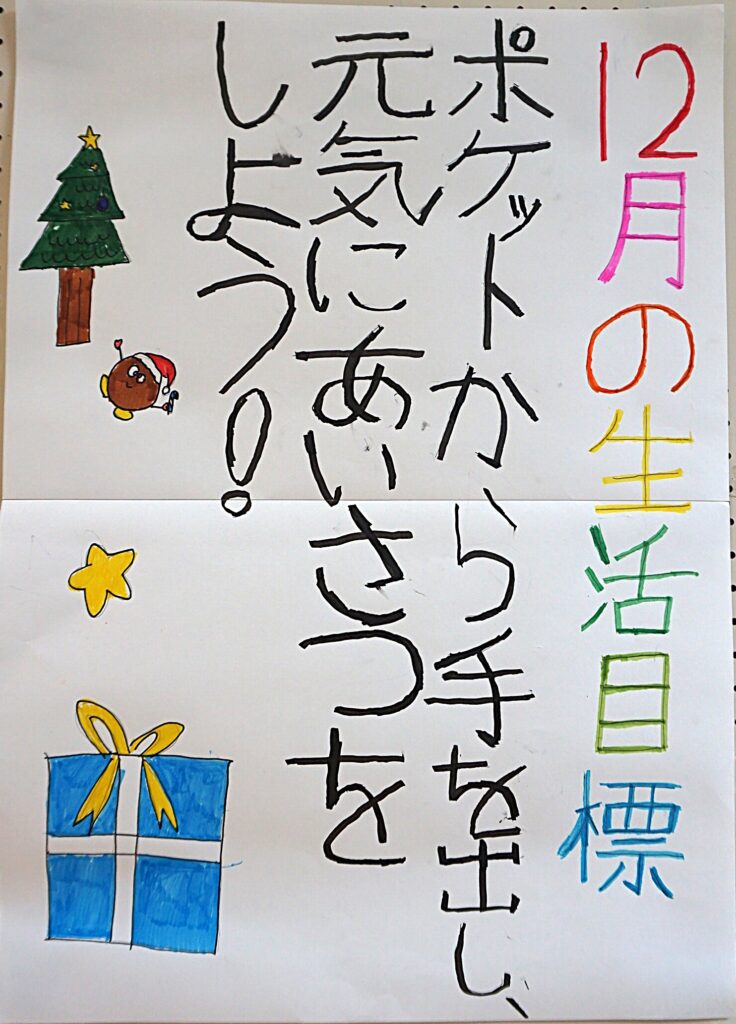 12月の生活目標
ポケットから手を出し、
元気にあいさつを
しよう!